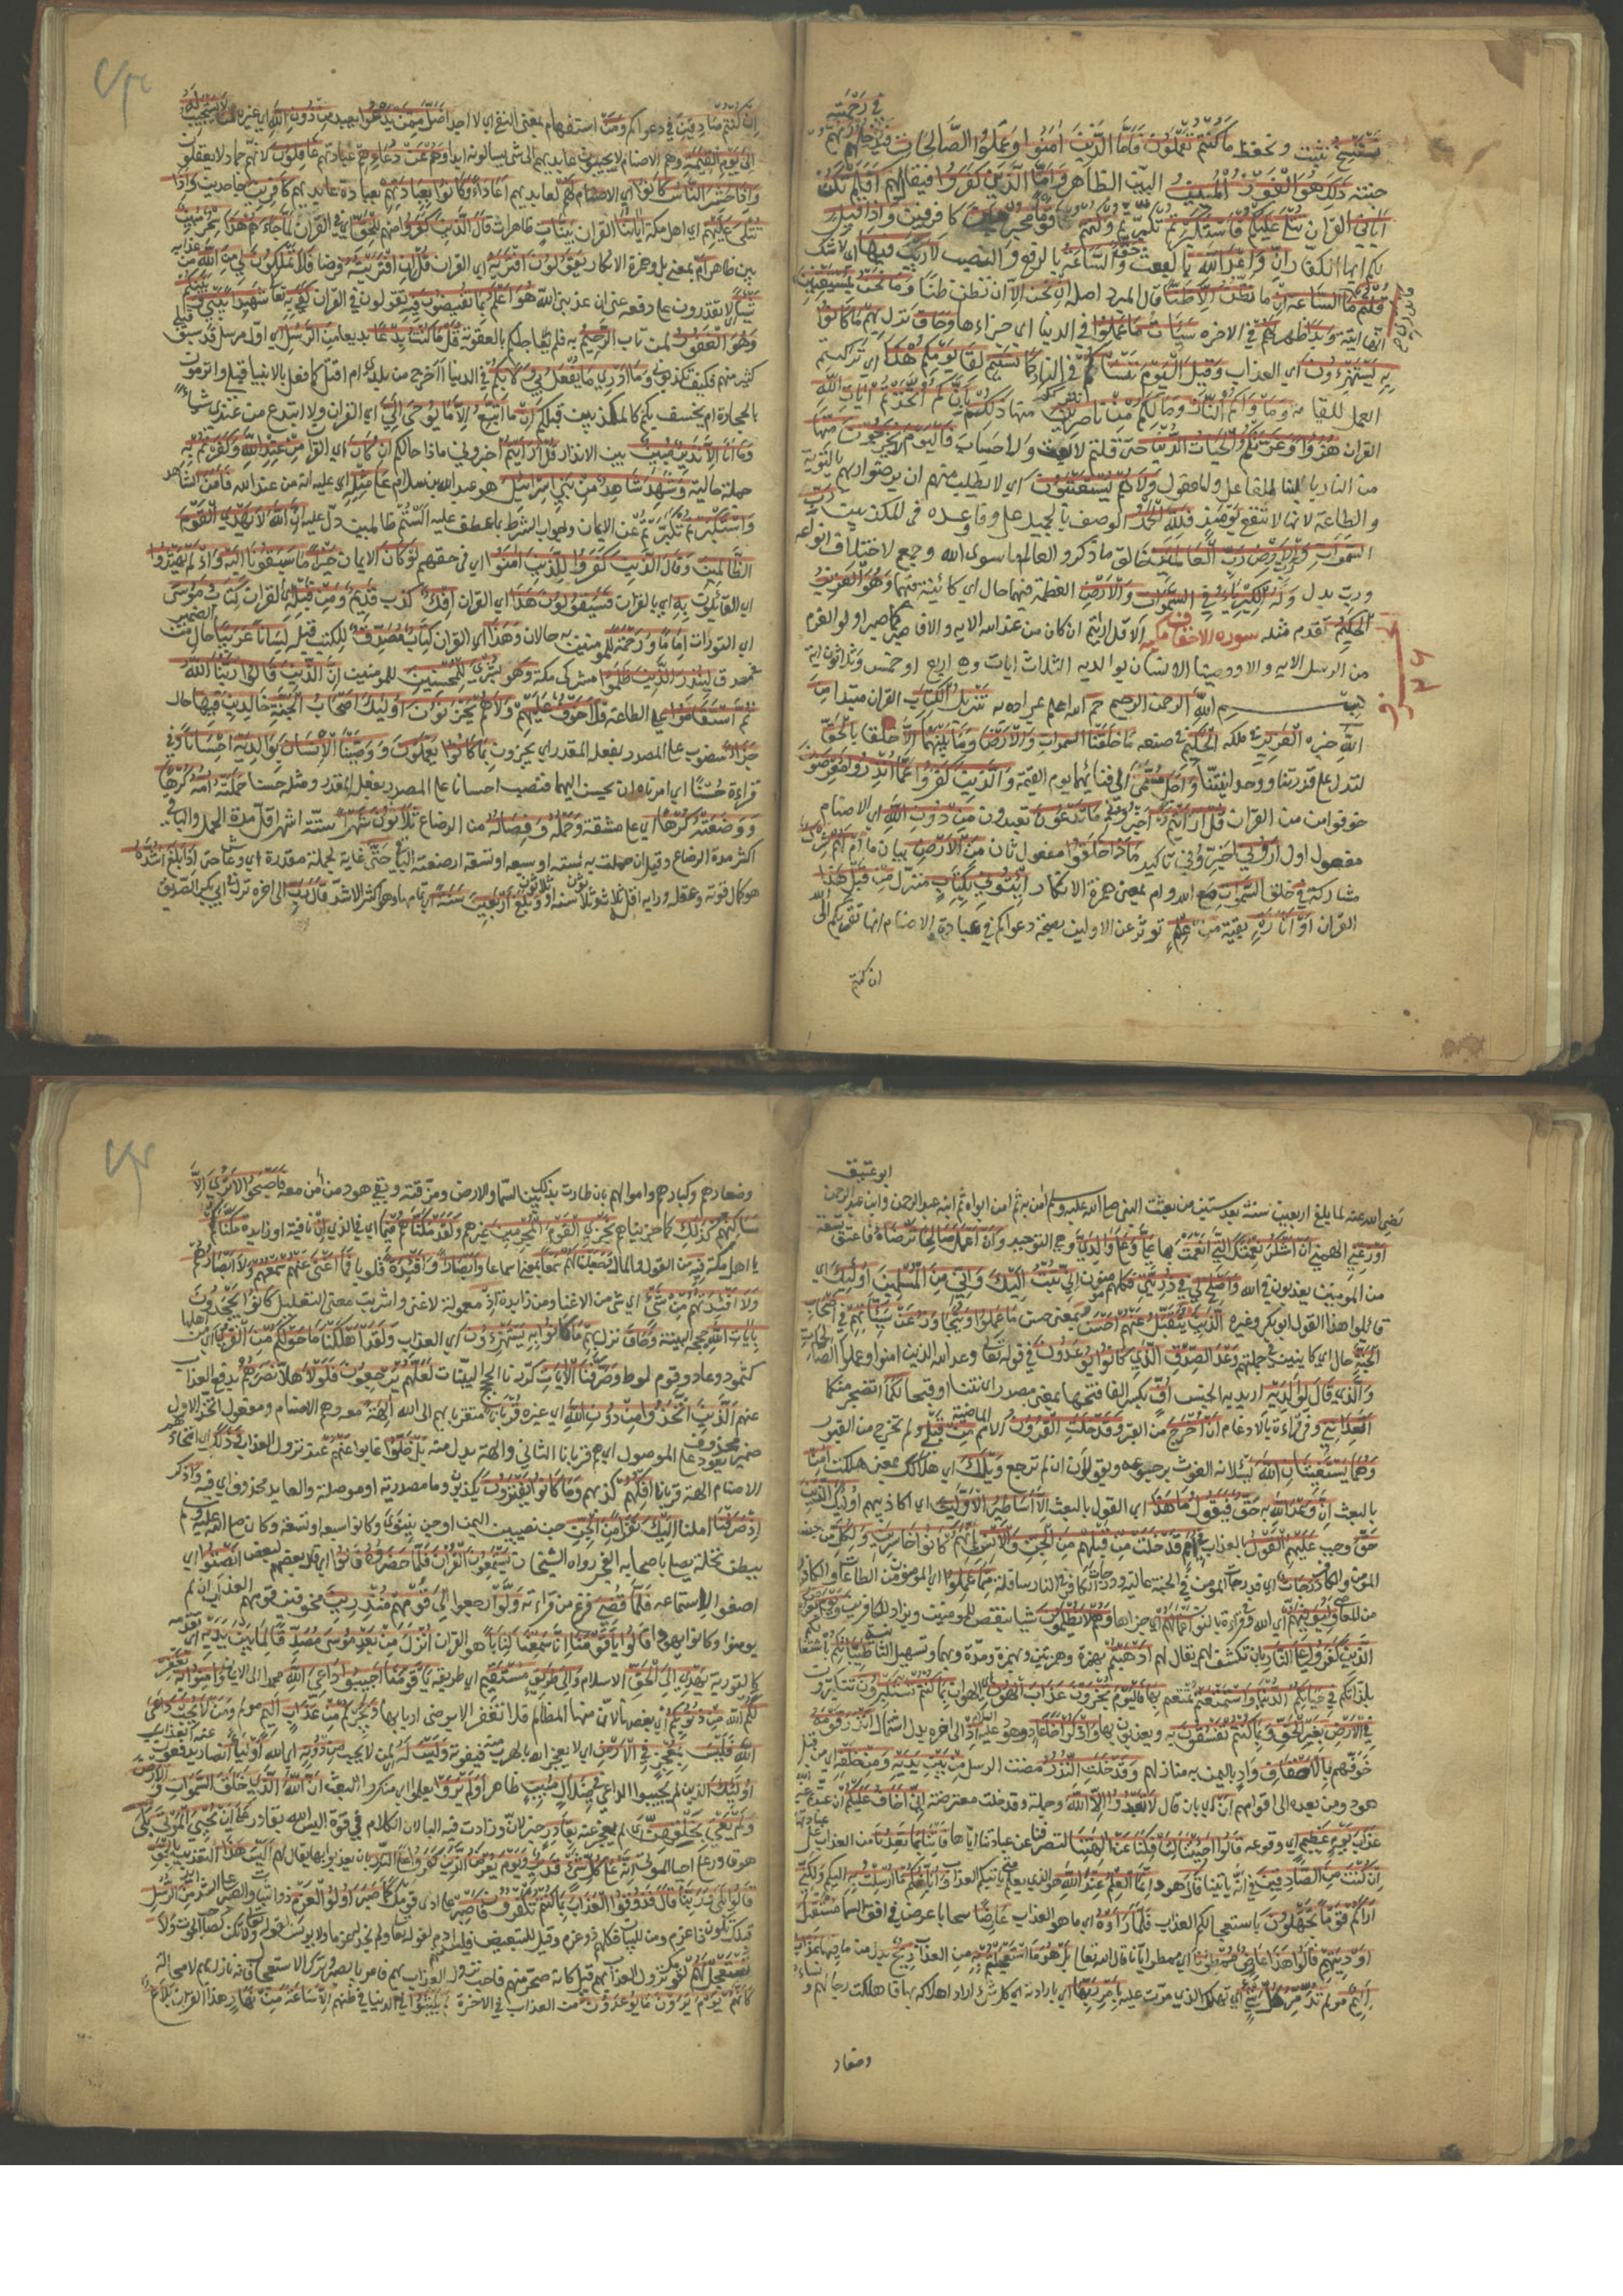 في رحمته
نستنسخ نثبت ونحفظ ما كنتم تعملون فأما الذين آمنوا وعملوا الصالحات فيدخلهم ربهم
جنته ذلك هو الفوز المبين البين الظاهر وأما الذين كفروا فيقال لهم أفلم تكن
آياتي القرآن تتلى عليكم فاستكبرتم تكبرتم وكنتم قوما مجرمين كافرين وإذا قيل
لكم أيها الكفار إن وعد الله بالبعث حق والساعة بالرفع والنصب لا ريب فيها أي لا شك
قلتم ما الساعة إن ما نظن إلا ظنا قال المبرد أصله إن نحن إلا أن نظن ظنا وما نحن بمستيقنين
أنها آتية وبدا ظهر لهم في الآخرة سيئات ما عملوا في الدنيا أي جزاءها وحاق نزل بهم ما كانوا
به يستهزءون أي العذاب وقيل اليوم ننساكم في النار كما نسيتم لقاء يومكم هذا أي تركتم
العمل للقائه ومأواكم النار وما لكم من ناصرين منها ذلكم بأنكم اتخذتم آيات الله
القرآن هزوا وغرتكم الحيوة الدنيا حتى قلتم لا بعث ولا حساب فاليوم لا يخرجون منها
من النار بالبناء للفاعل وللمفعول ولا هم يستعتبون أي لا يطلب منهم أن يرضوا ربهم بالتوبة
والطاعة لأنها لا تنفع يومئذ فلله الحمد الوصف بالجميل على وفاء وعده في المكذبين رب
السموات ورب الأرض رب العالمين خالق ما ذكر والعالم ما سوى الله وجمع لاختلاف أنواعه
ورب بدل وله الكبرياء في السموات والأرض العظمة فيهما حال أي كائنة فيهما وهو العزيز
الحكيم تقدم مثله سورة الاحقاف مكية إلا قل أرأيتم إن كان من عند الله الآية وإلا فاصبر كما صبر أولو العزم
من الرسل الآية وإلا ووصينا الإنسان بوالديه الثلاث آيات وهي أربع أو خمس وثلاثون آية
بسم الله الرحمن الرحيم حم الله أعلم بمراده به تنزيل الكتاب القرآن مبتدا من
الله خبره العزيز في ملكه الحكيم في صنعه ما خلقنا السموات والأرض وما بينهما إلا خلقا بالحق
لتدل على قدرتنا ووحدانيتنا وأجل مسمى إلى فنائهما يوم القيمة والذين كفروا عما أنذروا معرضون
خوفوا من القرآن قل أرأيتم أخبروني ما تدعون تعبدون من دون الله أي الأصنام
مفعول أول أروني أخبروني تأكيد ماذا خلقوا مفعول ثان من الأرض بيان ما أم لهم شرك
مشاركة في خلق السموات مع الله وأم بمعنى همزة الإنكار ائتوني بكتاب منزل من قبل هذا
القرآن أو أثارة بقية من علم تؤثر عن الأولين بصحة دعواكم في عبادة الأصنام أنها تقربكم إلى الله
ان كنتم
إن كنتم صادقين في دعواكم ومن استفهام بمعنى النفي أي لا أحد أضل ممن يدعوا يعبد من دون الله أي غيره من لا يستجيب له
إلى يوم القيمة وهم الأصنام لا يجيبون عابديهم إلى شيء يسألونه أبدا وهم عن دعائهم عبادتهم غافلون لأنهم جماد لا يعقلون
وإذا حشر الناس كانوا أي الأصنام لهم لعابديهم أعداء وكانوا بعبادتهم بعبادة عابديهم كافرين جاحدين وإذا
تتلى عليهم أي أهل مكة آياتنا القرآن بينات ظاهرات قال الذين كفروا منهم للحق أي القرآن لما جاءهم هذا سحر مبين
بين ظاهر أم بمعنى بل وهمزة الإنكار يقولون افتراه أي القرآن قل إن افتريته فرضا فلا تملكون لي من الله من عذابه
شيئا أي لا تقدرون على دفعه عني إن عذبني الله هو أعلم بما تفيضون فيه تقولون في القرآن كفى به تعالى شهيدا بيني وبينكم
وهو الغفور لمن تاب الرحيم به فلم يعاجلكم بالعقوبة قل ما كنت بدعا بديعا من الرسل أي أول مرسل قد سبق قبلي
كثير منهم فكيف تكذبوني وما أدري ما يفعل بي ولا بكم في الدنيا أأخرج من بلدي أم أقتل كما فعل بالأنبياء قبلي أو ترمون
بالحجارة أم يخسف بكم كالمكذبين قبلكم إن ما أتبع إلا ما يوحى إلي أي القرآن ولا أبتدع من عندي شيئا
وما أنا إلا نذير مبين بين الإنذار قل أرأيتم أخبروني ماذا حالكم إن كان أي القرآن من عند الله وكفرتم به
جملة حالية وشهد شاهد من بني إسرائيل هو عبد الله بن سلام على مثله أي عليه أنه من عند الله فآمن الشاهد
واستكبرتم تكبرتم عن الإيمان وجواب الشرط بما عطف عليه ألستم ظالمين دل عليه إن الله لا يهدي القوم
الظالمين وقال الذين كفروا للذين آمنوا أي في حقهم لو كان الإيمان خيرا ما سبقونا إليه وإذ لم يهتدوا
أي القائلون به أي بالقرآن فسيقولون هذا أي القرآن إفك كذب قديم ومن قبله أي القرآن كتاب موسى
أي التورات إماما ورحمة للمؤمنين به حالان وهذا أي القرآن كتاب مصدق للكتب قبله لسانا عربيا حال من الضمير
في مصدق لينذر الذين ظلموا مشركي مكة وهو بشرى للمحسنين للمؤمنين إن الذين قالوا ربنا الله
ثم استقاموا على الطاعة فلا خوف عليهم ولا هم يحزنون أولئك أصحاب الجنة خالدين فيها حال
جزاء منصوب على المصدر بفعله المقدر أي يجزون بما كانوا يعملون ووصينا الإنسان بوالديه إحسانا وفي
قراءة حسنا أي أمرناه أن يحسن إليهما فنصب إحسانا على المصدر بفعله المقدر ومثله حسنا حملته أمه كرها
ووضعته كرها أي على مشقة وحمله وفصاله من الرضاع ثلاثون شهرا ستة أشهر أقل مدة الحمل والباقي
أكثر مدة الرضاع وقيل إن حملت به ستة أو تسعة أرضعته الباقي حتى غاية لجملة مقدرة أي وعاش حتى إذا بلغ أشده
هو كمال قوته وعقله ورأيه أقله ثلاث وثلاثون سنة أو ثلاثون وبلغ أربعين سنة أي تمامها وهو أكثر الأشد قال رب إلى آخره نزل في أبي بكر الصديق
ابو عتيق
رضي الله عنه لما بلغ أربعين سنة بعد سنتين من بعثت النبي صلى الله عليه وسلم آمن به ثم آمن أبواه ثم ابنه عبد الرحمن وابن عبد الرحمن
أوزعني ألهمني أن أشكر نعمتك التي أنعمت بها علي وعلى والدي وهي التوحيد وأن أعمل صالحا ترضاه فأعتق تسعة
من المؤمنين يعذبون في الله وأصلح لي في ذريتي فكلهم مؤمنون إني تبت إليك وإني من المسلمين أولئك أي
قائلوا هذا القول أبو بكر وغيره الذين نتقبل عنهم أحسن بمعنى حسن ما عملوا ونتجاوز عن سيئاتهم في أصحاب
الجنة حال أي كائنين في جملتهم وعد الصدق الذي كانوا يوعدون في قوله تعالى وعد الله الذين آمنوا وعملوا الصالحات
والذي قال لوالديه أريد به الجنس أف بكسر الفاء وفتحها بمعنى مصدر أي نتنا وقبحا لكما أتضجر منكما
أتعدانني وفي قراءة بالإدغام أن أخرج من القبر وقد خلت القرون الأمم الماضية من قبلي ولم تخرج من القبور
وهما يستغيثان الله يسئلانه الغوث برجوعه ويقولان إن لم ترجع ويلك أي هلاكك بمعنى هلكت آمن
بالبعث إن وعد الله به حق فيقول ما هذا أي القول بالبعث إلا أساطير الأولين أي أكاذيبهم أولئك الذين
حق وجب عليهم القول بالعذاب في أمم قد خلت من قبلهم من الجن والإنس إنهم كانوا خاسرين ولكل من جنس
المؤمن والكافر درجات أي فدرجات المؤمن في الجنة عالية ودرجات الكافر في النار سافلة مما عملوا أي المؤمنون من الطاعات والكافرون
من المعاصي وليوفيهم أي الله وفي قراءة بالنون أعمالهم أي جزاءها وهم لا يظلمون شيئا ينقص للمؤمنين ويزاد للكافرين ويوم يعرض
الذين كفروا على النار بأن تكشف لهم يقال لهم أذهبتم بهمزة وهمزتين وبهمزة ومدة وبهما وتسهيل الثانية طيباتكم باشتغالكم
بلذاتكم في حياتكم الدنيا واستمتعتم تمتعتم بها فاليوم تجزون عذاب الهون أي الهوان بما كنتم تستكبرون تتكبرون
في الأرض بغير الحق وبما كنتم تفسقون به ويعذبون بها واذكر أخا عاد هو هود عليه السلام إذ إلى آخره بدل اشتمال أنذر قومه
خوفهم بالأحقاف واد باليمن به منازلهم وقد خلت النذر مضت الرسل من بين يديه ومن خلفه أي من قبل
هود ومن بعده إلى أقوامهم أن أي بأن قال لا تعبدوا إلا الله وجملة وقد خلت معترضة إني أخاف عليكم إن عبدتم غير الله
عذاب يوم عظيم أي وقوعه قالوا أجئتنا لتأفكنا عن آلهتنا لتصرفنا عن عبادتها فأتنا بما تعدنا من العذاب على عبادتها
إن كنت من الصادقين في أنه يأتينا قال هود إنما العلم عند الله هو الذي يعلم متى يأتيكم العذاب وأبلغكم ما أرسلت به إليكم ولكني
أراكم قوما تجهلون باستعجالكم العذاب فلما رأوه أي ما هو العذاب عارضا سحابا عرض في أفق السماء مستقبل
أوديتهم قالوا هذا عارض ممطرنا أي ممطر إيانا قال الله تعالى بل هو ما استعجلتم به من العذاب ريح بدل من ما فيها عذاب
أليم مؤلم تدمر كل شيء أي تهلك الذي مرت عليه بأمر ربها أي بإرادته أي كل شيء أراد إهلاكه بها فأهلكت رجالهم ونساءهم
وصغار
وصغارهم وكبارهم وأموالهم بأن طارت بذلك بين السماء والأرض ومزقته وبقي هود ومن آمن معه فأصبحوا لا يرى إلا
مساكنهم كذلك كما جزيناهم نجزي القوم المجرمين غيرهم ولقد مكناهم فيما أي في الذي إن نافية أو زايدة مكناكم
يا أهل مكة فيه من القوة والمال وجعلنا لهم سمعا بمعنى أسماعا وأبصارا وأفئدة قلوبا فما أغنى عنهم سمعهم ولا أبصارهم
ولا أفئدتهم من شيء أي شيء من الإغناء ومن زايدة إذ معمولة لأغنى وأشربت معنى التعليل كانوا يجحدون
بآيات الله حججه البينة وحاق نزل بهم ما كانوا به يستهزءون أي العذاب ولقد أهلكنا ما حولكم من القرى أي أهلها
كثمود وعاد وقوم لوط وصرفنا الآيات كررنا الحجج البينات لعلهم يرجعون فلولا هلا نصرهم بدفع العذاب
عنهم الذين اتخذوا من دون الله أي غيره قربانا متقربا بهم إلى الله آلهة معه وهم الأصنام ومفعول اتخذوا الأول
ضمير محذوف يعود على الموصول أي هم وقربانا الثاني وآلهة بدل منه بل ضلوا غابوا عنهم عند نزول العذاب وذلك أي اتخاذهم
الأصنام آلهة قربانا إفكهم كذبهم وما كانوا يفترون يكذبون وما مصدرية أو موصولة والعايد محذوف أي فيه واذكر
إذ صرفنا أملنا إليك نفرا من الجن جن نصيبين اليمن أو جن نينوى وكانوا سبعة أو تسعة وكان صلى الله عليه وسلم
ببطن نخلة يصلي بأصحابه الفجر رواه الشيخان يستمعون القرآن فلما حضروه قالوا أي قال بعضهم لبعض أنصتوا أي
أصغوا لاستماعه فلما قضي فرغ من قراءته ولوا رجعوا إلى قومهم منذرين مخوفين قومهم العذاب إن لم
يؤمنوا وكانوا يهودا قالوا يا قومنا إنا سمعنا كتابا هو القرآن أنزل من بعد موسى مصدقا لما بين يديه أي تقدمه
كالتورية يهدي إلى الحق الإسلام وإلى طريق مستقيم أي طريقه يا قومنا أجيبوا داعي الله محمدا إلى الإيمان وآمنوا به يغفر
لكم الله من ذنوبكم أي بعضها لأن منها المظالم فلا تغفر إلا برضى أربابها ويجركم من عذاب أليم مؤلم ومن لا يجب داعي
الله فليس بمعجز في الأرض أي لا يعجز الله بالهرب منه فيفوته وليس له لمن لا يجب من دونه أي الله أولياء أنصار يدفعون عنه العذاب
أولئك الذين لم يجيبوا الداعي في ضلال مبين ظاهر أولم يروا يعلموا أي منكروا البعث أن الله الذي خلق السموات والأرض
ولم يعي بخلقهن لم يعجز عنه بقادر خبر أن وزادت فيه الباء لأن الكلام في قوة أليس الله بقادر على أن يحيي الموتى بلى
هو قادر على إحياء الموتى إنه على كل شيء قدير ويوم يعرض الذين كفروا على النار بأن يعذبوا بها يقال لهم أليس هذا التعذيب بالحق
قالوا بلى وربنا قال فذوقوا العذاب بما كنتم تكفرون فاصبر على أذى قومك كما صبر أولوا العزم ذوو الثبات والصبر على الشدائد من الرسل
قبلك فتكون ذا عزم ومن للبيان فكلهم ذو عزم وقيل للتبعيض فليس منهم آدم لقوله تعالى ولم نجد له عزما ولا يونس لقوله تعالى ولا تكن كصاحب الحوت ولا
تستعجل لهم لقومك نزول العذاب بهم قيل كأنه ضجر منهم فأحب نزول العذاب بهم فأمر بالصبر وترك الاستعجال فإنه نازل بهم لا محالة
كأنهم يوم يرون ما يوعدون من العذاب في الآخرة لم يلبثوا في الدنيا في ظنهم إلا ساعة من نهار هذا القرآن بلاغ